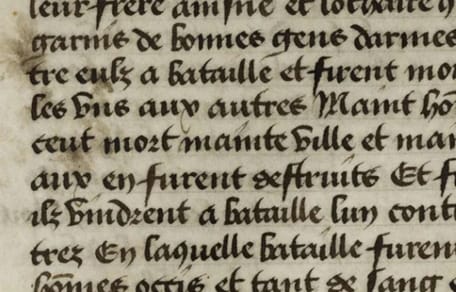 leur frere ainsne et lothaire
garnis de bonnes gens darmes
tre eulx a bataille et firent mo
les vns aux autres Maint hõ
ceut mort mainte ville et mai
aux en furent destruits Et f
ilz vindrent a bataille lun cont
trez En laquelle bataille furen
hõmes occis et tant de sang